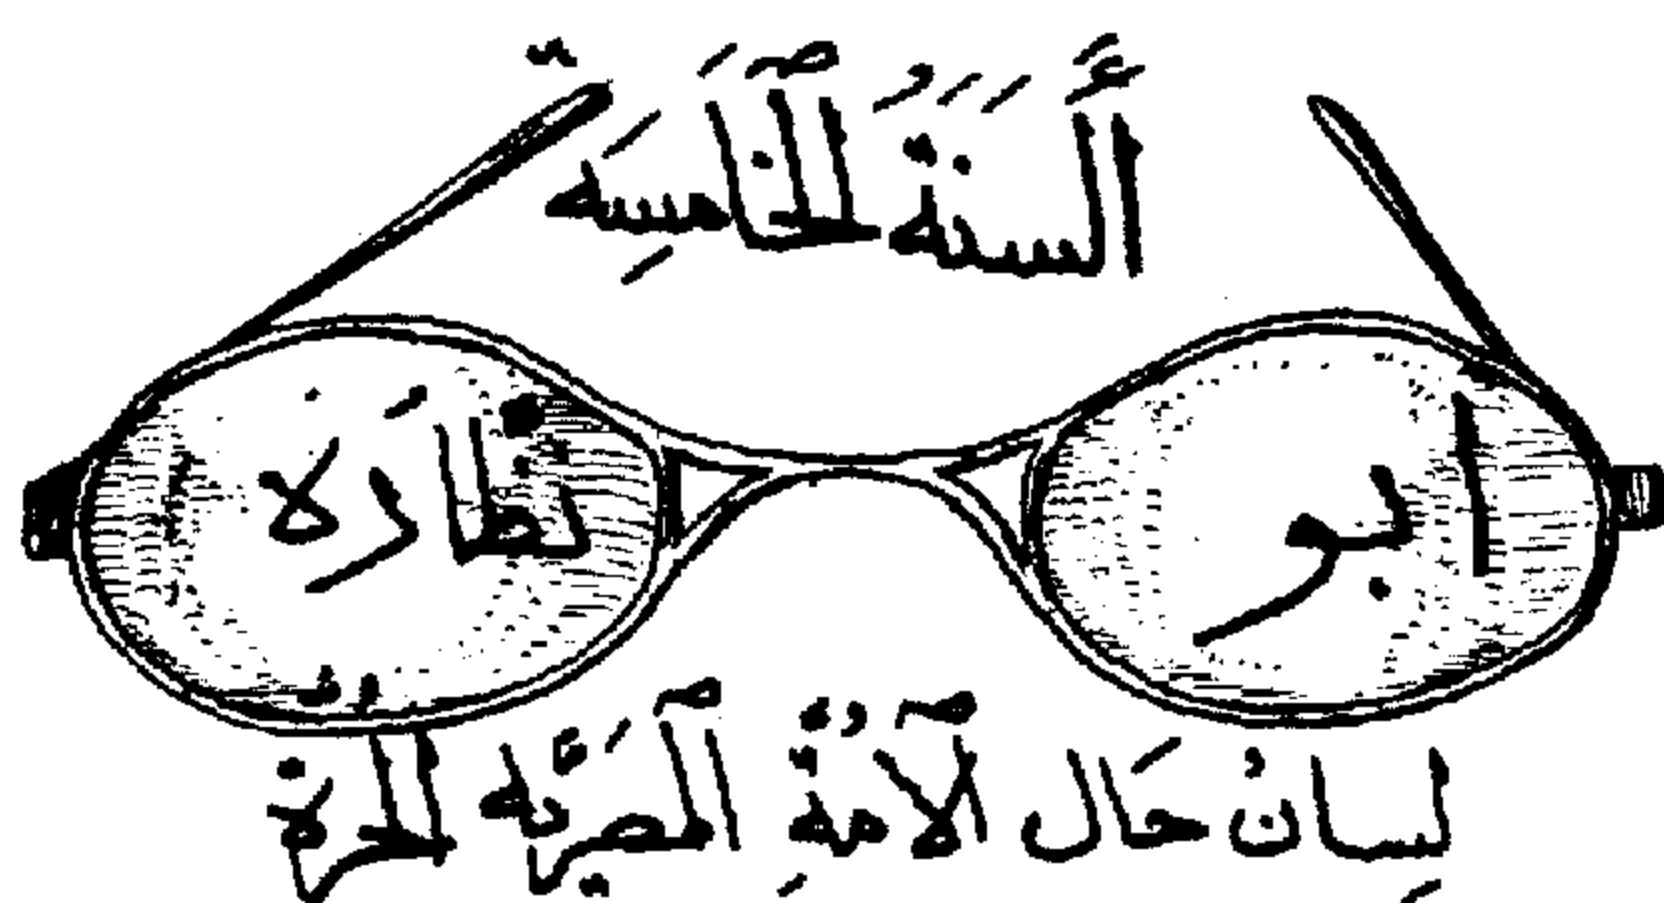 أَلسَنَةُ ٱلخَامِسَه
ابو نظَاره
لِسانُ حَال ٱلاُمةِ ٱلمَصِريَّه ٱلحُرَّة